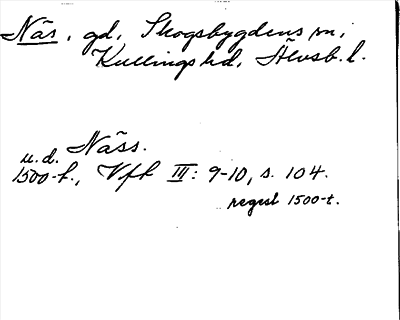 Näs, gd, Skogsbygdens sn,
Kullings hd, Älvsb. l.
u. d. Näss.
1500-t., Vfh III: 9-10, s. 104.
regest 1500-t.